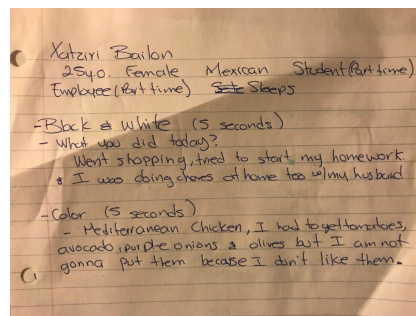 Xatziri Bailon
25y.o. Female Mexican Student (Part time)
Employee (Part time) Sleeps
- Black & White (5 seconds)
- What you did today?
Went shopping, tried to start my homework.
& I was doing chores at home too w/my husband
- Color (5 seconds)
- Mediterranean Chicken, I had to get tomatoes,
avocado, purple onions & olives but I am not
gonna put them because I don't like them.